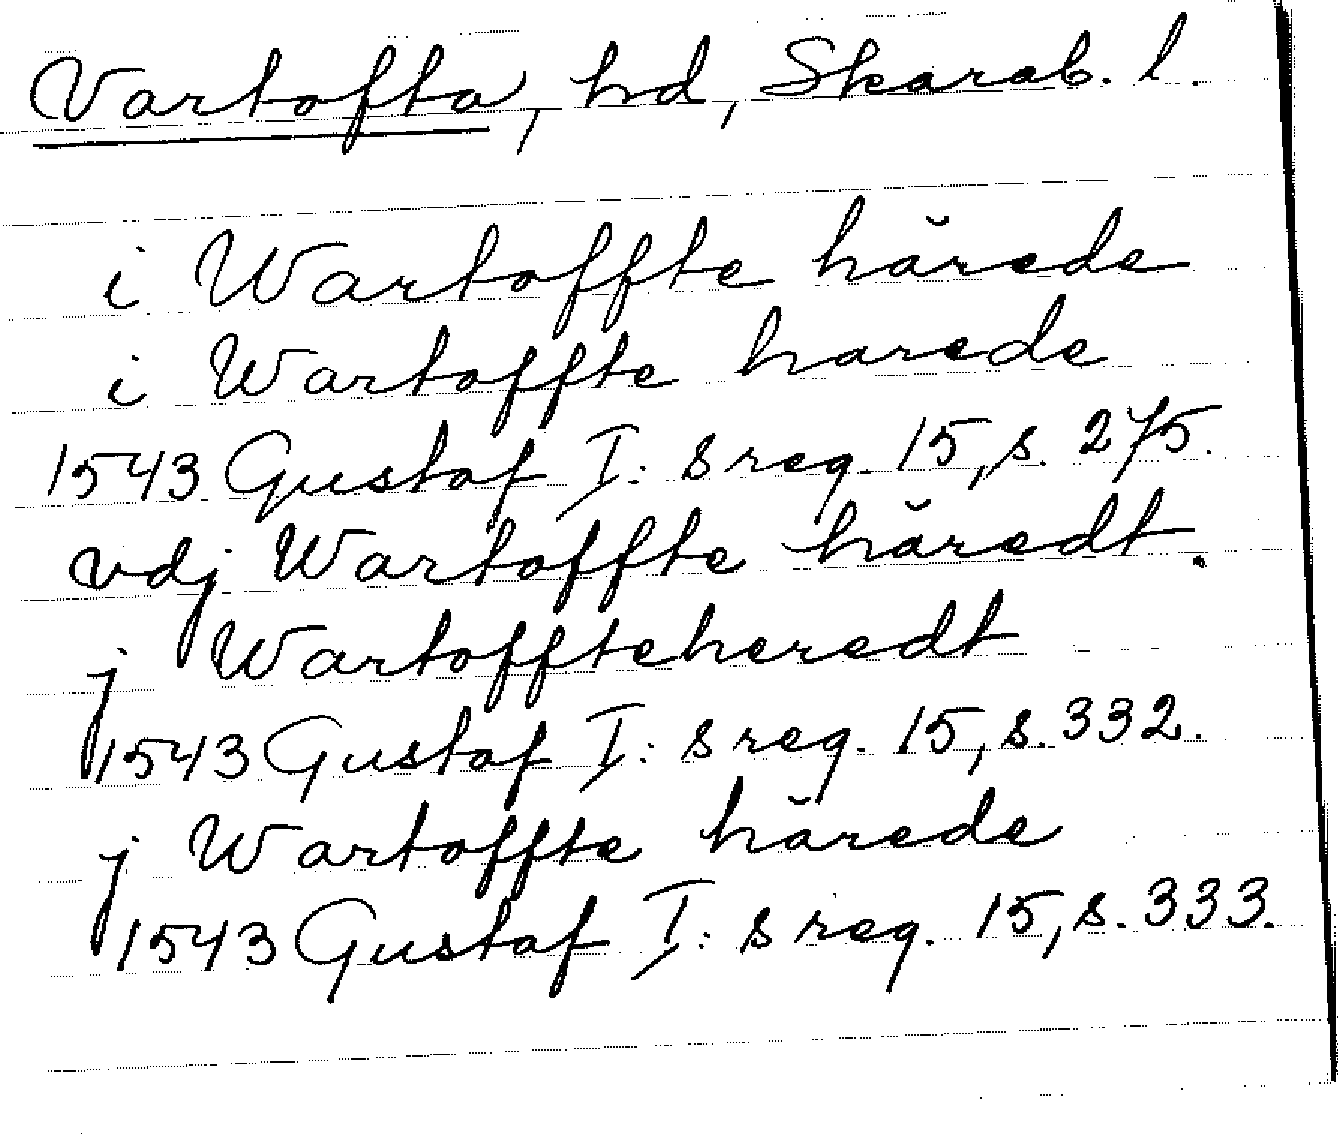 Vartofta, hd, Skarab. l.
i Wartoffte hărede
i Wartoffte harede
1543 Gustaf I:s reg. 15, s. 275.
vdj Wartoffte hăredt.
j Wartoffteheredt
1543 Gustaf I:s reg. 15, s. 332.
j Wartoffte hărede
1543 Gustaf I:s reg. 15, s. 333.